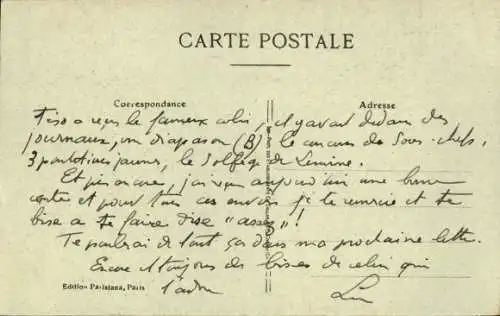 CARTE POSTALE
Correspondance
Adresse
reçu le fameux colis, il y avait dedans des
journaux, un diapason (B) le concours de Sous-chefs,
3 partitions jaunes, le Solfège de Lemoine.
Et puis encore, j'ai reçu aujourd'hui une
carte et pour tous ces envois je te remercie et te
bise a te faire dire "assez"!
Te parlerai de tout ça dans ma prochaine lettre.
Encore et toujours des bises de celui qui
t'adore
Edition Parisiana, Paris